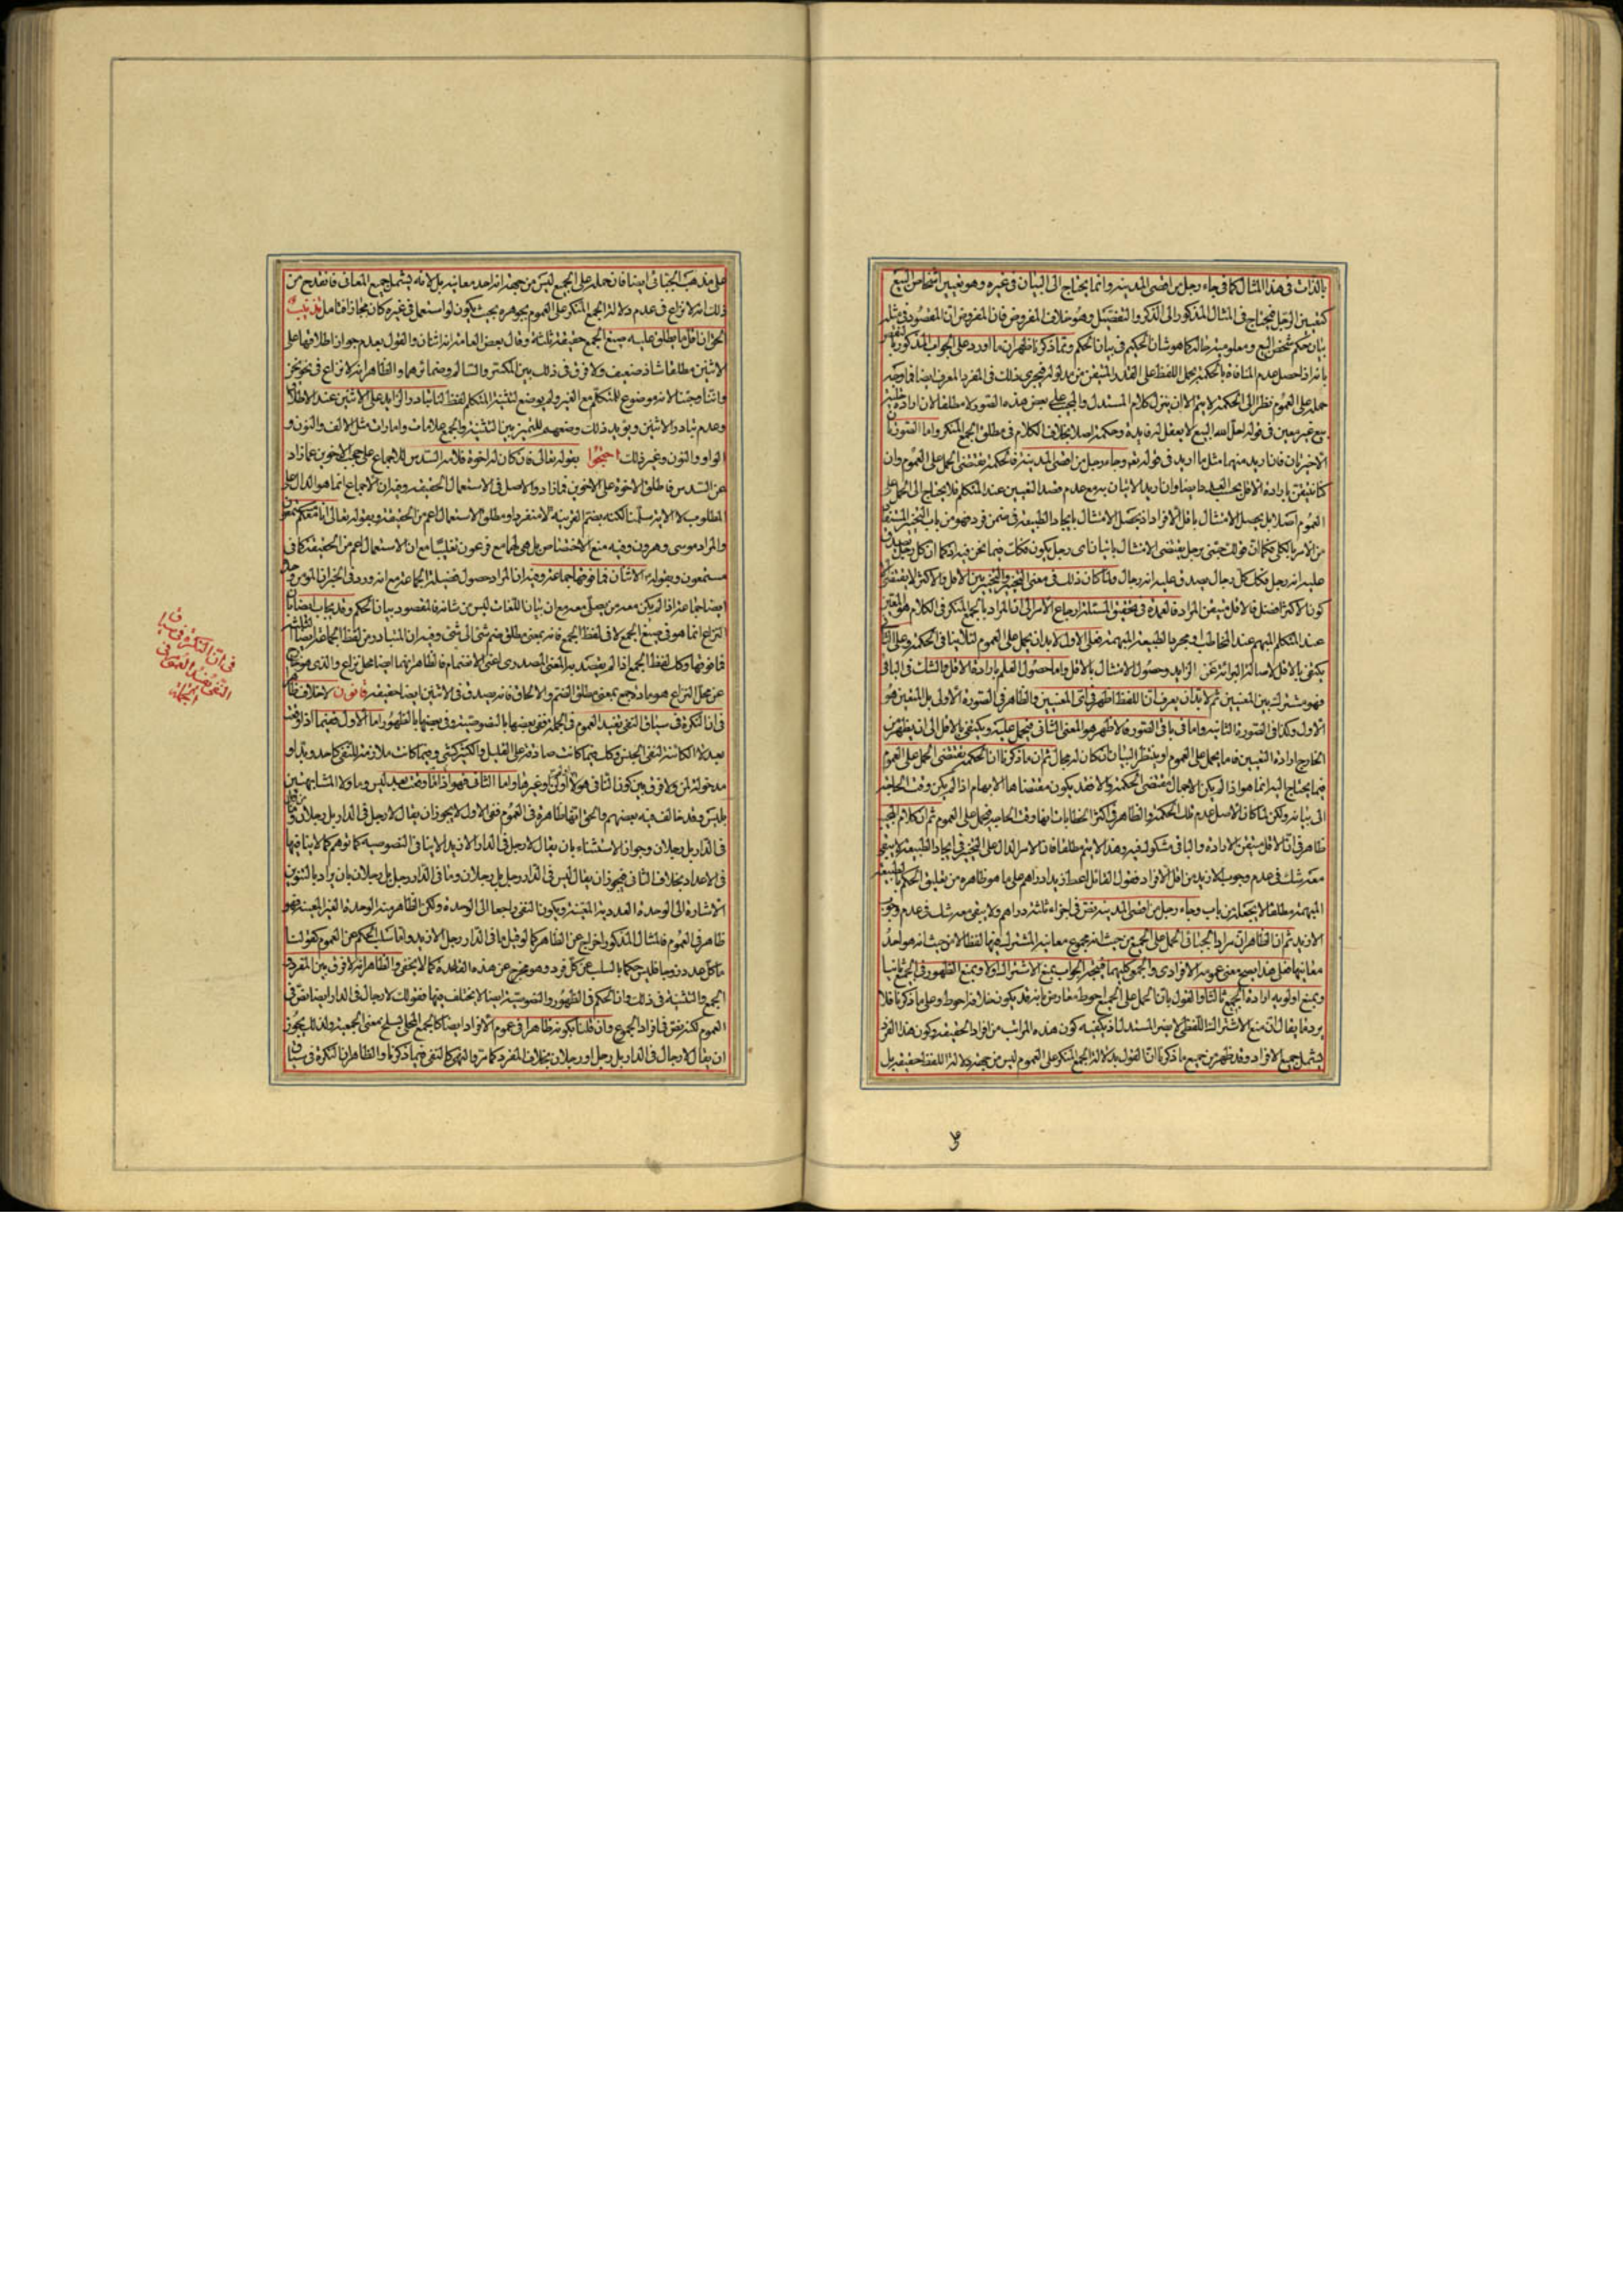 بالذات فى هذا المثال كما فى جاء رجل من اقصى المدينه وانما يحتاج الى البيان فى غيره وهو تعيين اشخاص البيع
كتعيين الرجل فيحتاج فى المثال المذكور الى الذكر والتفصيل وهو خلاف المفروض فان المفروض ان المقصود فى مثله
بيان حكم شخص البيع ومعلوميته حاله كما هو شان الحكيم فى بيان الحكم ومما ذكرنا ظهر ان ما اورد على الجواب المذكور
بانه اذا حصل عدم المنافاة بالحكمة بحمل اللفظ على القدر المتيقن من مدلوله فيجرى ذلك فى المفرد المعرف ايضا فما وجه
حمله على العموم نظرا الى الحكمة لا يتم الا ان ينزل كلام المستدل والمجيب على بعض هذه الصور لا مطلقا لان ارادة
بيع غير معين فى قوله احل الله البيع لا يعقل له فايدة وحكمة اصلا بخلاف الكلام فى مطلق الجمع المنكر واما الصورتان
الاخيرتان فان اريد منهما مثل ما اريد فى قوله تعه وجاء رجل من اقصى المدينة فالحكمة تقتضى الحمل على العموم وان
العموم اصلا بل يحصل الامتثال باقل الافراد اذ يحصل الامتثال بايجاد الطبيعة فى ضمن فرد فهو من باب التخيير المستفاد
من الامر بالكلى فكما ان قولك جئنى برجل يقتضى الامتثال باتيان اى رجل يكون فكذلك فيما نحن فيه اذ كما ان كل رجل يصدق
عليه انه رجل فكك كل رجال يصدق عليه انه رجال ولما كان ذلك فى معنى التخيير والتخيير بين الاقل والاكثر لا يقتضى
كون الاكثر افضل فالاقل متيقن المراد فالعمدة فى تحقيق المسئلة ارجاع الامر الى ان المراد بالجمع المنكر فى الكلام هو المعين
عند المتكلم المبهم عند المخاطب او مجرد الطبيعة المبهمة فعلى الاول لا بد ان يحمل على العموم لئلا ينافى الحكمة وعلى الثانى
يكتفى بالاقل لاصالة البرائة عن الزايد وحصول الامتثال بالاقل واما حصول العلم بارادة الاقل والشك فى الباقى
فهو مشترك بين المعنيين ثم لا بد ان يعرف ان اللفظ اظهر فى اى المعنيين والظاهر فى الصورة الاولى بل المتعين هو
الاول وكذا فى الصورة الثانيه واما فى باقى الصور فالاظهر هو المعنى الثانى فيحمل عليه ويكتفى بالاقل الى ان يظهر من
الخارج ارادة التعيين فاما يحمل على العموم او ينتظر البيان ان كان له مجال ثم ان ما ذكرنا ان الحكمة تقتضى الحمل على العموم
فيما يحتاج اليه انما هو اذا لم يكن الاجمال مقتضى الحكمة والا فقد يكون مقتضاها الابهام اذا لم يكن وقت الحاجة
الى بيانه ولكن لما كان الاصل عدم تلك الحكمة والظاهر فى اكثر الخطابات انها وقت الحاجه فيحمل على العموم ثم ان كلام المجيب
ظاهر فى ان الاقل متيقن الارادة والباقى مشكوك فيه وهذا لا يتم مطلقا فان الامر الدال على التخيير فى ايجاد الطبيعة لا يبقى
معه شك فى عدم وجوب الازيد من اقل الافراد فقول القائل اعط زيدا دراهم على ما هو ظاهره من تعليق الحكم بالطبيعة
المبهمة مطلقا لا بجعله من باب وجاء رجل من اقصى المدينه نص فى اجزاء ثلثة دراهم ولا يبقى معه شك فى عدم وجوب
الازيد ثم ان الظاهر ان مراد الجبائى الحمل على الجميع من حيث انه مجموع معانيه المشترك فيها لفظا لا من حيث انه هو احد
معانيها فعلى هذا يصح معنى عمومه الافرادى والجموعى كليهما فيتجه الجواب بمنع الاشتراك اولا ومنع الظهور فى الجميع ثانيا
ومنع اولويه ارادة الجميع ثالثا والقول بان الحمل على الجميع احوط معارض بانه قد يكون خلافه احوط وعلى ما ذكرنا فلا
يرد ما يقال ان منع الاشتراك اللفظى لا يضر المستدل اذ يكفيه كون هذه المراتب من افراد الحقيقه وكون هذا الفرد
يشتمل جميع الافراد وقد ظهر من جميع ما ذكرنا ان القول بدلالة الجمع المنكر على العموم ليس من جهة دلالة اللفظ حقيقه بل
على مذهب الجبائى ايضا فان حمله على الجميع ليس من جهة انه احد معانيه بل لانه يشتمل جميع المعانى فانقدح من
ذلك انه لا نزاع فى عدم دلالة الجمع المنكر على العموم بجوهره بحيث يكون لو استعمل فى غيره كان مجازا فتامل تذنيب
الحق ان اقل ما يطلق عليه صيغ الجمع حقيقة ثلثة وقال بعض العامة انه اثنان والقول بعدم جواز اطلاقها على
الاثنين مطلقا شاذ ضعيف ولا فرق فى ذلك بين المكسر والسالم وضمائرهما والظاهر انه لا نزاع فى نحو نحن
وانا وجئنا لانه موضوع للمتكلم مع الغير ولم يوضع لتثنية المتكلم لفظ لنا تبادر الزايد على الاثنين عند الاطلاق
وعدم تبادر الاثنين ويؤيد ذلك وضعهم للتمييز بين التثنية والجمع علامات وامارات مثل الالف والنون و
الواو والنون وغير ذلك احتجوا بقوله تعالى فان كان له اخوة فلامه السدس للاجماع على حجب الاخوين عما زاد
عن السدس فاطلق الاخوة على الاخوين فما زاد والاصل فى الاستعمال الحقيقه وفيه ان الاجماع انما هو الدال على
المطلوب لا الاية سلمنا لكنه بضم القرينه لا منفردا ومطلق الاستعمال اعم من الحقيقة وبقوله تعالى انا معكم مستمعون
والمراد موسى وهرون وفيه منع الاختصاص بل هى لهما مع فرعون تغليبا مع ان الاستعمال اعم من الحقيقة كما فى
مستمعون وبقوله الاثنان فما فوقها جماعة وفيه ان المراد حصول فضيلة الجماعة مع انه ورد فى الخبر ان المؤمن وحده
ايضا جماعة اذا لم يكن معه من يصلى معه مع ان بيان اللغات ليس من شانه فالمقصود بيان الحكم وقد يجاب ايضا بان
النزاع انما هو فى صيغ الجمع لا فى لفظ الجمع فانه بمعنى مطلق ضم شئ الى شئ وفيه ان المتبادر من لفظ الجماعة ايضا الثلثة
فما فوقها وكك لفظ الجمع اذا لم يقصد به المعنى المصدرى اعنى الانضمام فالظاهر انهما ايضا محل نزاع والذى هو خارج
عن محل النزاع هو مادة جمع بمعنى مطلق الضم والالحاق فانه يصدق فى الاثنين ايضا حقيقه قانون لا خلاف ظاهرا
فى ان النكرة فى سياق النفى يفيد العموم فى الجملة ففى بعضها بالنصوصية وفى بعضها بالظهور اما الاول ففيما اذا وقعت
بعد لا الكائنة لنفى الجنس وكك فيما كانت صادقة على القليل والكثير كشئ وفيما كانت ملازمة للنفى كاحد وبد او
مدخولة لمن ولا فرق بين كون النافى هو لا او غيرها واما الثانى فهو اذا ما وقعت بعد ليس وما ولا المشابهتين
بليس وقد خالف فيه بعضهم والحق انها ظاهرة فى العموم ففى الاول لا يجوز ان يقال لا رجل فى الدار بل رجلان
فى الدار بل رجلان وجواز الاستثناء بان يقال لا رجل فى الدار الا زيد لا ينافى النصوصيه كما توهم كما لا ينافيها
فى الاعداد بخلاف الثانى فيجوز ان يقال ليس فى الدار رجل بل رجلان وما فى الدار رجل بل رجلان بان يراد بالتنوين
الاشارة الى الوحدة العددية المعينة ويكون النفى راجعا الى الوحدة ولكن الظاهر منه الوحدة الغير المعينة فهو
ظاهر فى العموم فالمثال المذكور اخراج عن الظاهر كما لو قيل ما فى الدار رجل الا زيد واما سلب الحكم عن العموم كقولنا
ما كل عدد زوجا فليس حكما بالسلب عن كل فرد وهو مخرج عن هذه القاعدة كما لا يخفى والظاهر انه لا فرق بين المفرد و
الجمع والتثنية فى ذلك وان الحكم فى الظهور والنصوصية ايضا لا يختلف فيها فقولك لا رجال فى الدار ايضا نص فى
العموم لكنه نص فى افراد الجموع وان قلنا بكونه ظاهرا فى عموم الافراد ايضا كالجمع المحلى فينسلخ بمعنى الجمعية ولذلك يجوز
ان يقال لا رجال فى الدار بل رجل او رجلان بخلاف المفرد كما مر والنهى كالنفى فيما ذكرنا والظاهر ان النكرة فى سياق
فى ان النكرة فى سياق
النفى يفيد العموم فى
الجملة